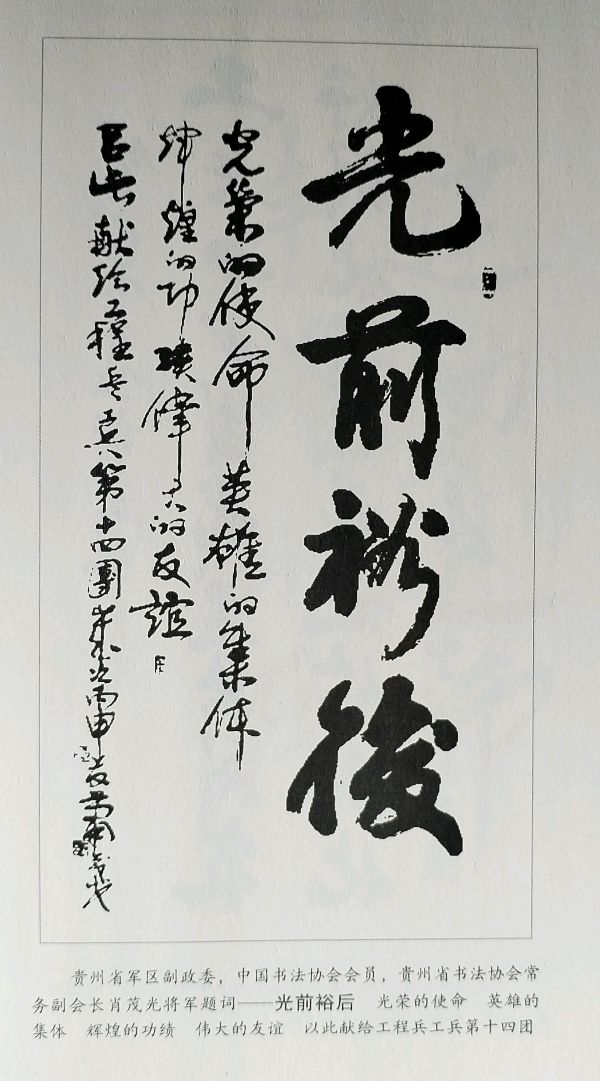 光前裕後
光榮的使命 英雄的集体
辉煌的功績 偉大的友誼
以此献给工程兵工兵第十四團 茂光 丙申
贵州省军区副政委，中国书法协会会员，贵州省书法协会常
务副会长肖茂光将军题词——光前裕后　光荣的使命　英雄的
集体　辉煌的功绩　伟大的友谊　以此献给工程兵工兵第十四团